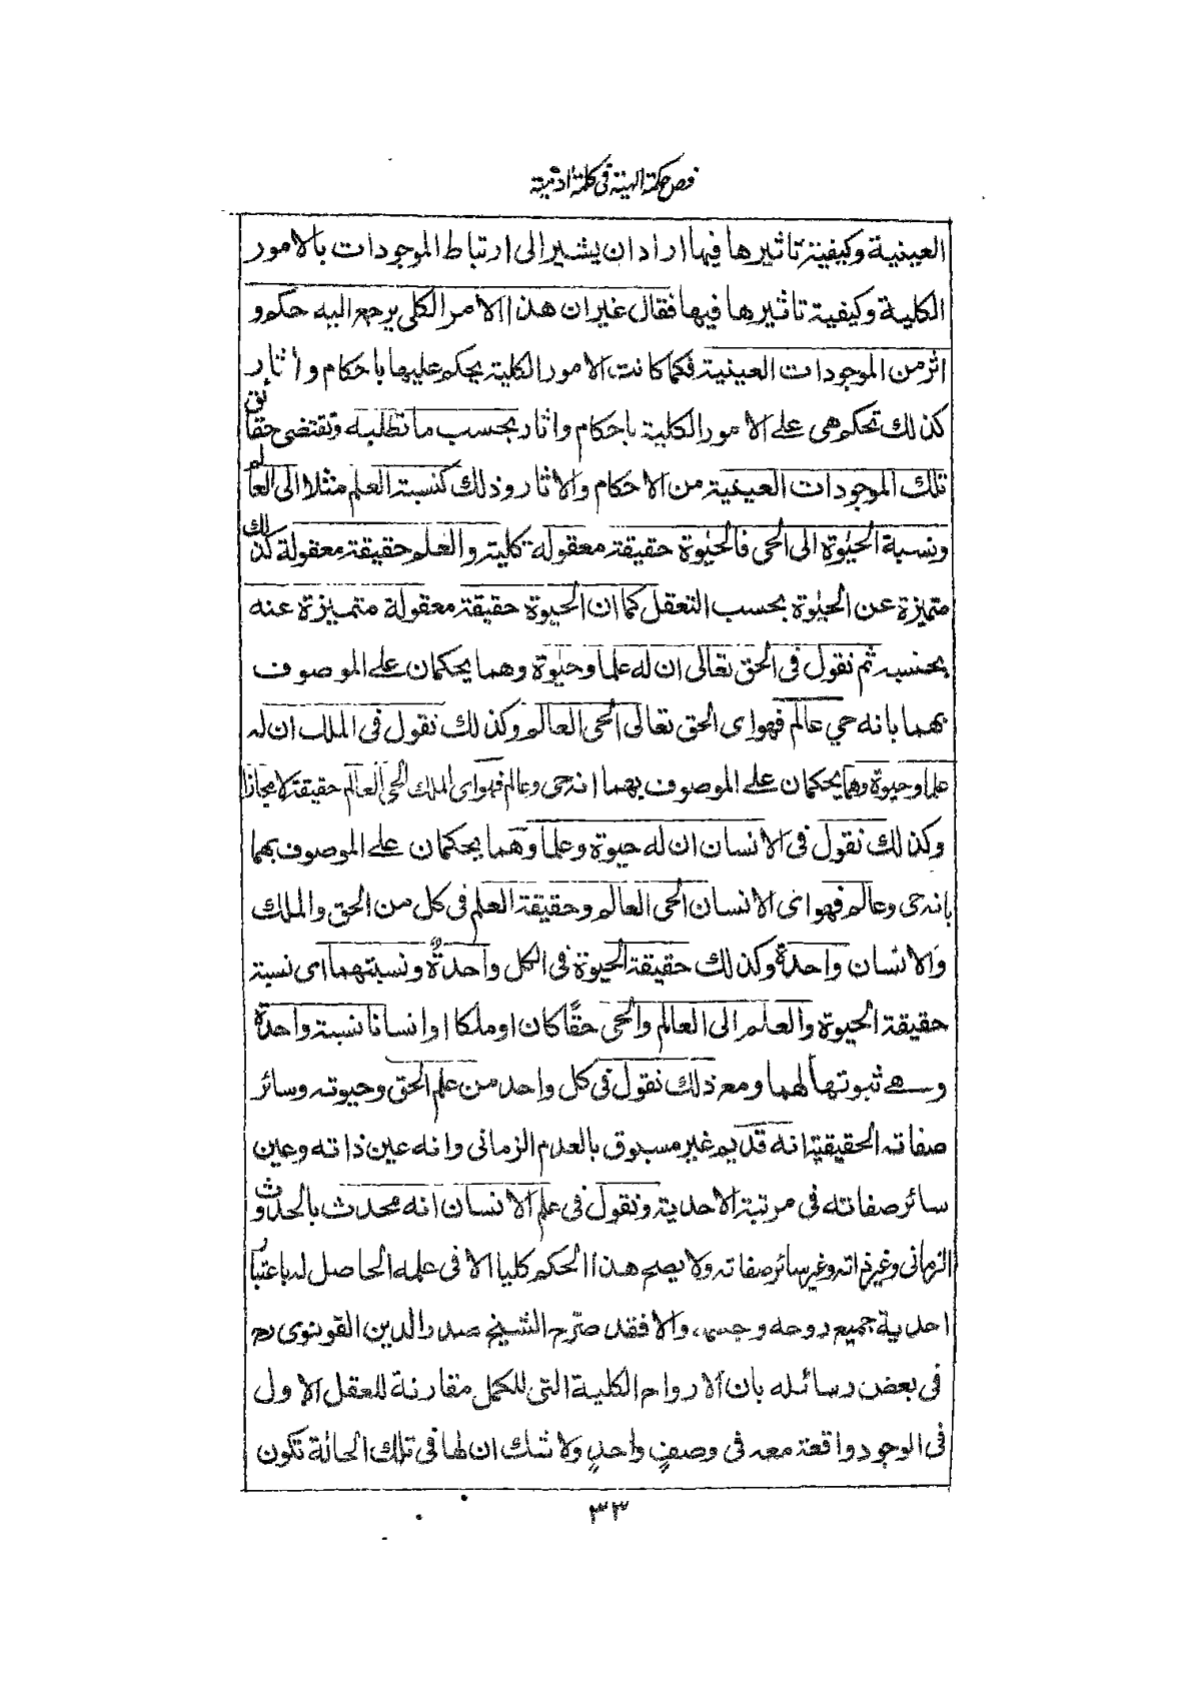 فص حكمة الهية فى كلمة ادمية
العينية وكيفية تاثيرها فيها اراد ان يشير الى ارتباط الموجودات بالامور
الكلية وكيفية تاثيرها فيها فقال غير ان هذا الامر الكلى يرجع اليه حكم و
اثر من الموجودات العينية فكما كانت الامور الكلية يحكم عليها باحكام و اثار
كذلك تحكم هى على الامور الكلية باحكام واثار بحسب ما تطلبه وتقتضى حقائق
تلك الموجودات العينية من الاحكام والاثار وذلك كنسبة العلم مثلا الى العالم
ونسبة الحيوة الى الحى فالحيوة حقيقة معقولة كلية والعلم حقيقة معقولة كذلك
متميزة عن الحيوة بحسب التعقل كما ان الحيوة حقيقة معقولة متميزة عنه
بحسبه ثم نقول فى الحق تعالى ان له علما وحيوة وهما يحكمان على الموصوف
بهما بانه حي عالم فهو اى الحق تعالى الحى العالم وكذلك نقول فى الملك ان له
علما وحيوة وهما يحكمان على الموصوف بهما انه حى وعالم فهو اى الملك الحى العالم حقيقة لا مجازا
وكذلك نقول فى الانسان ان له حيوة وعلما وهما يحكمان على الموصوف بهما
بانه حى وعالم فهو اى الانسان الحى العالم وحقيقة العلم فى كل من الحق والملك
والانسان واحدة وكذلك حقيقة الحيوة فى الكل واحدةٌ ونسبتهما اى نسبة
حقيقة الحيوة والعلم الى العالم والحى حقًا كان او ملكا او انسانا نسبة واحدة
وهے ثبوتها لهما ومع ذلك نقول فى كل واحد من علم الحق وحيوته وسائر
صفاته الحقيقية انه قديم غير مسبوق بالعدم الزمانى وانه عين ذاته وعين
سائر صفاته فى مرتبة الاحدية ونقول فى علم الانسان انه محدث بالحدوث
الزمانى وغير ذاته وغير سائر صفاته ولا يصح هذا الحكم كليا الا فى علمه الحاصل له باعتبار
احدية جميع روحه وجسمه، والا فقد صرّح الشيخ صدر الدين القونوى رح
فى بعض رسائله بان الارواح الكلية التى للكمل مقارنة للعقل الاول
فى الوجود واقعة معه فى وصفٍ واحدٍ ولا شك ان لها فى تلك الحالة تكون
٣٣